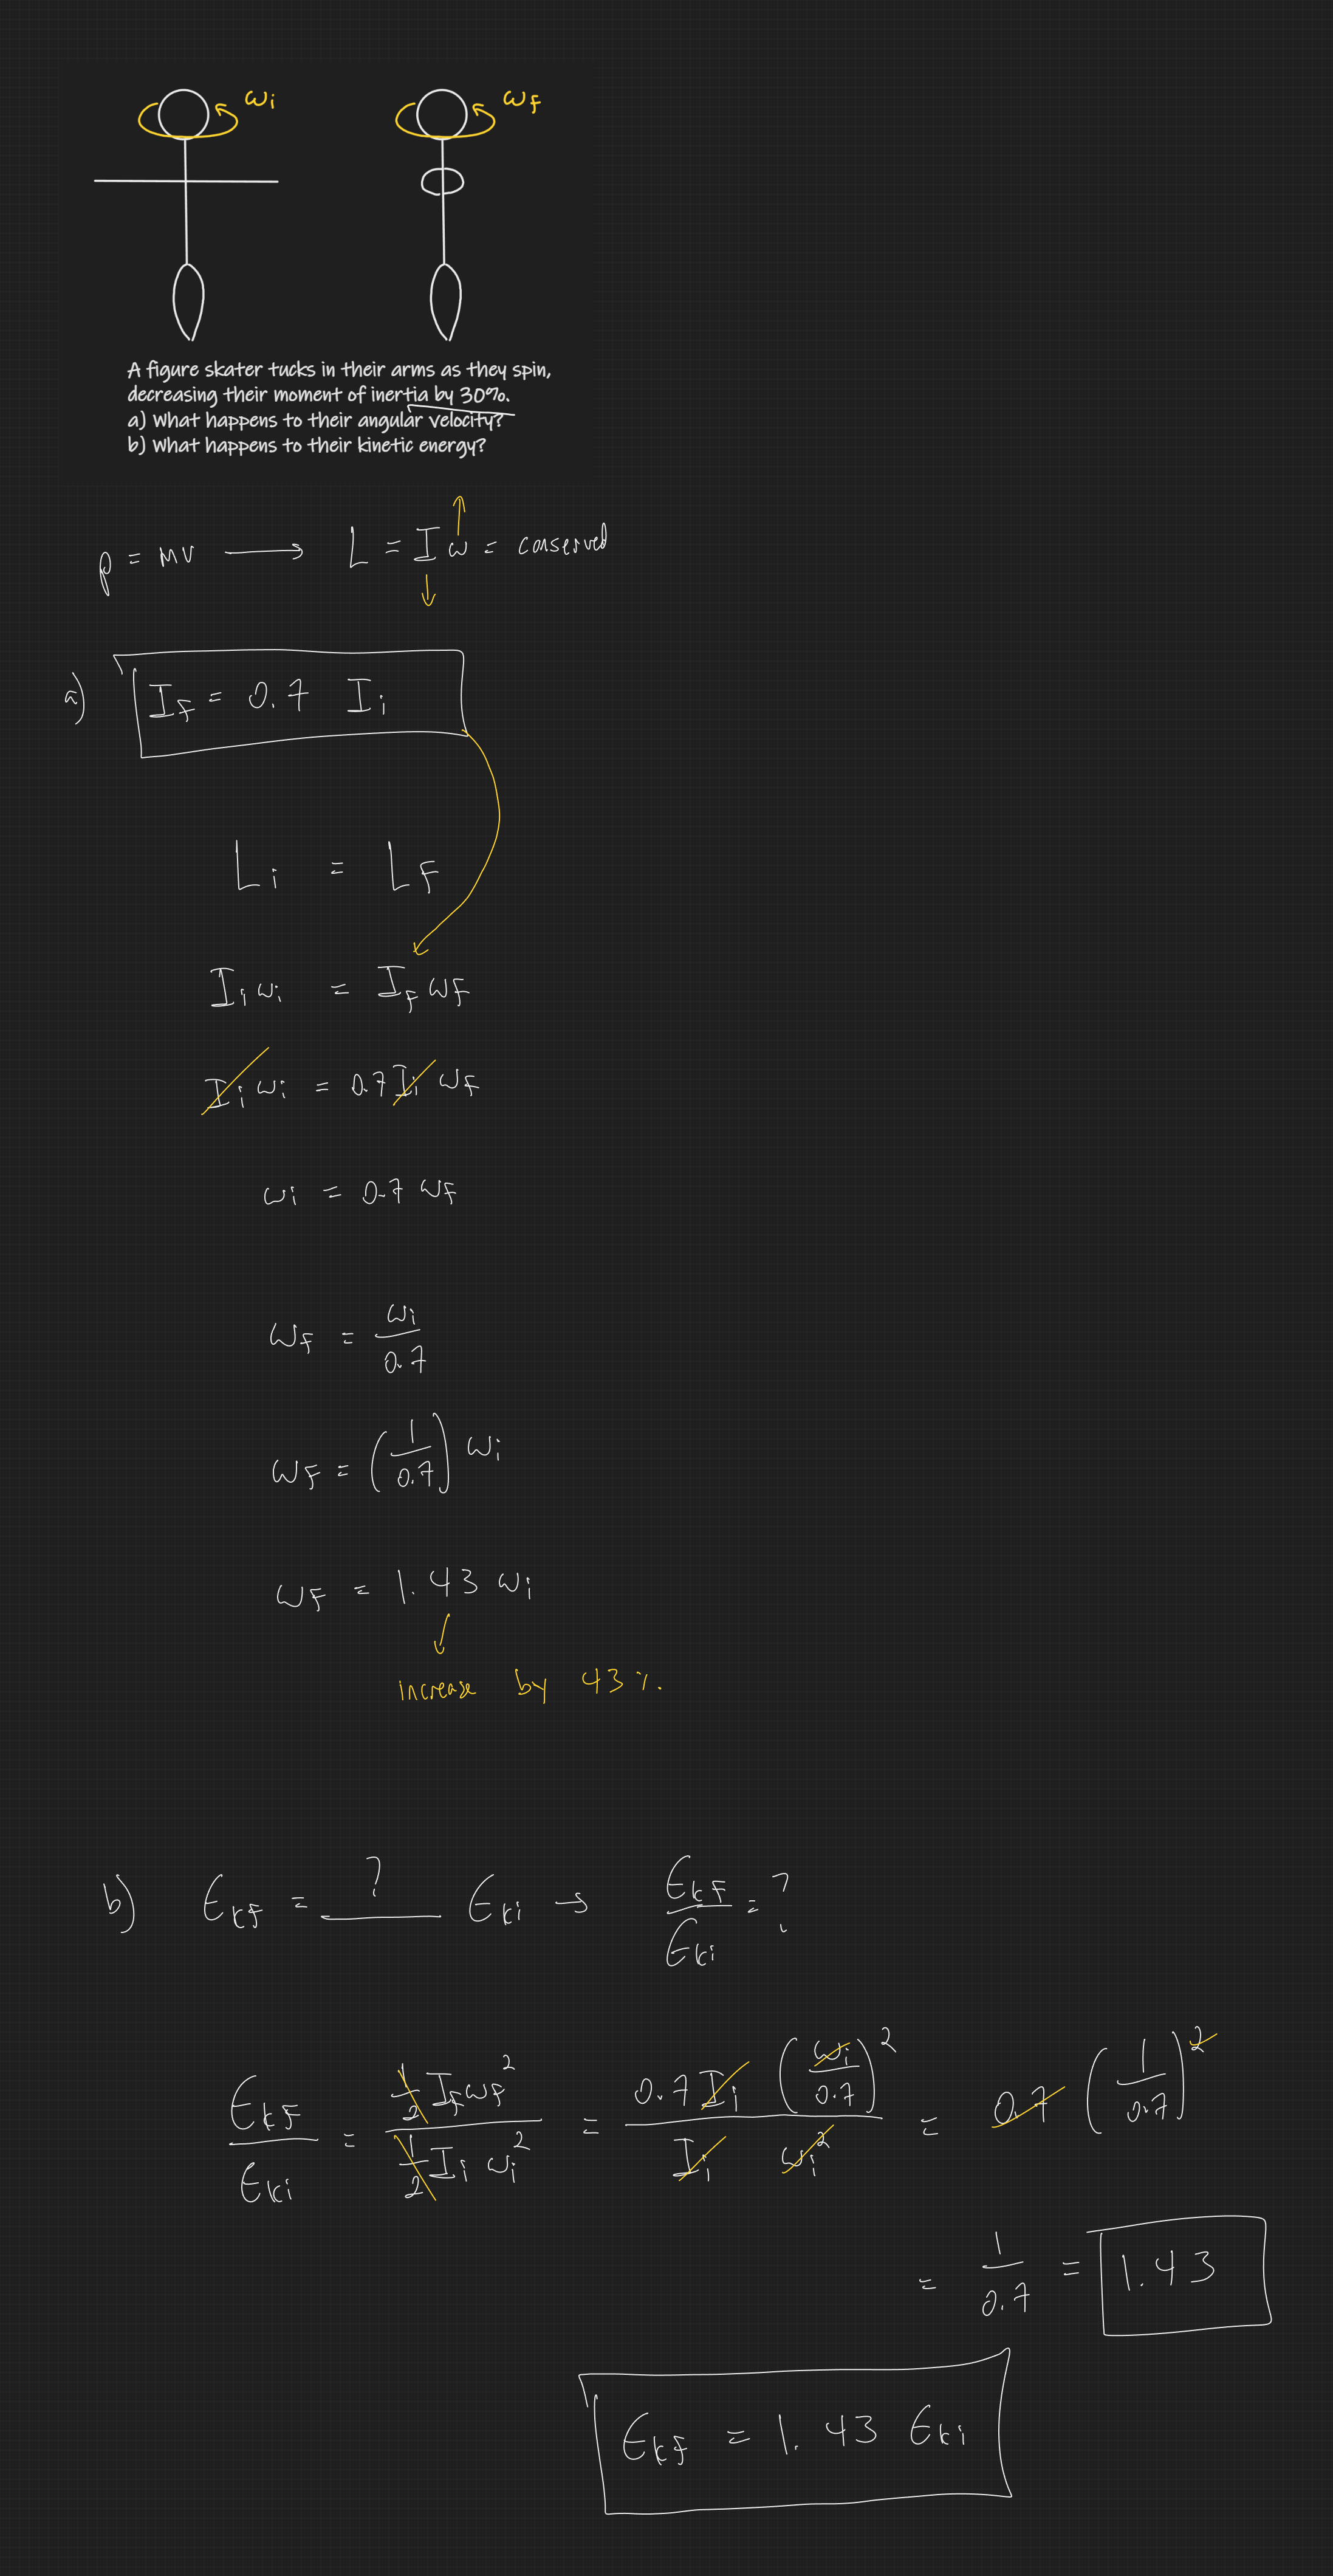 ωi ωF
A figure skater tucks in their arms as they spin,
decreasing their moment of inertia by 30%.
a) What happens to their angular velocity?
b) What happens to their kinetic energy?
p = mv → L = I ω = conserved
a) IF = 0.7 Ii
Li = LF
Ii ωi = IF ωF
Ii ωi = 0.7 Ii ωF
ωi = 0.7 ωF
ωF = ωi / 0.7
ωF = (1 / 0.7) ωi
ωF = 1.43 ωi
increase by 43%.
b) EkF = ? Eki → EkF / Eki = ?
EkF / Eki = 1/2 IF ωF² / 1/2 Ii ωi² = 0.7 Ii (ωi / 0.7)² / Ii ωi² = 0.7 (1 / 0.7)²
= 1 / 0.7 = 1.43
EkF = 1.43 Eki